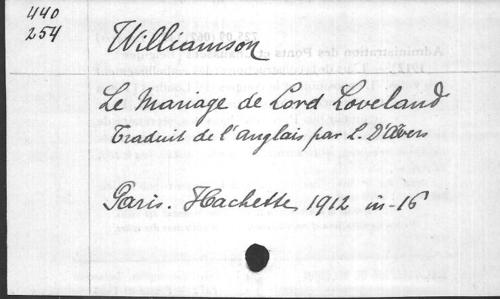 440
254
Williamson
Le Mariage de Lord Loveland
Traduit de l'anglais par L. D'Avers
Paris. Hachette 1912 in-16